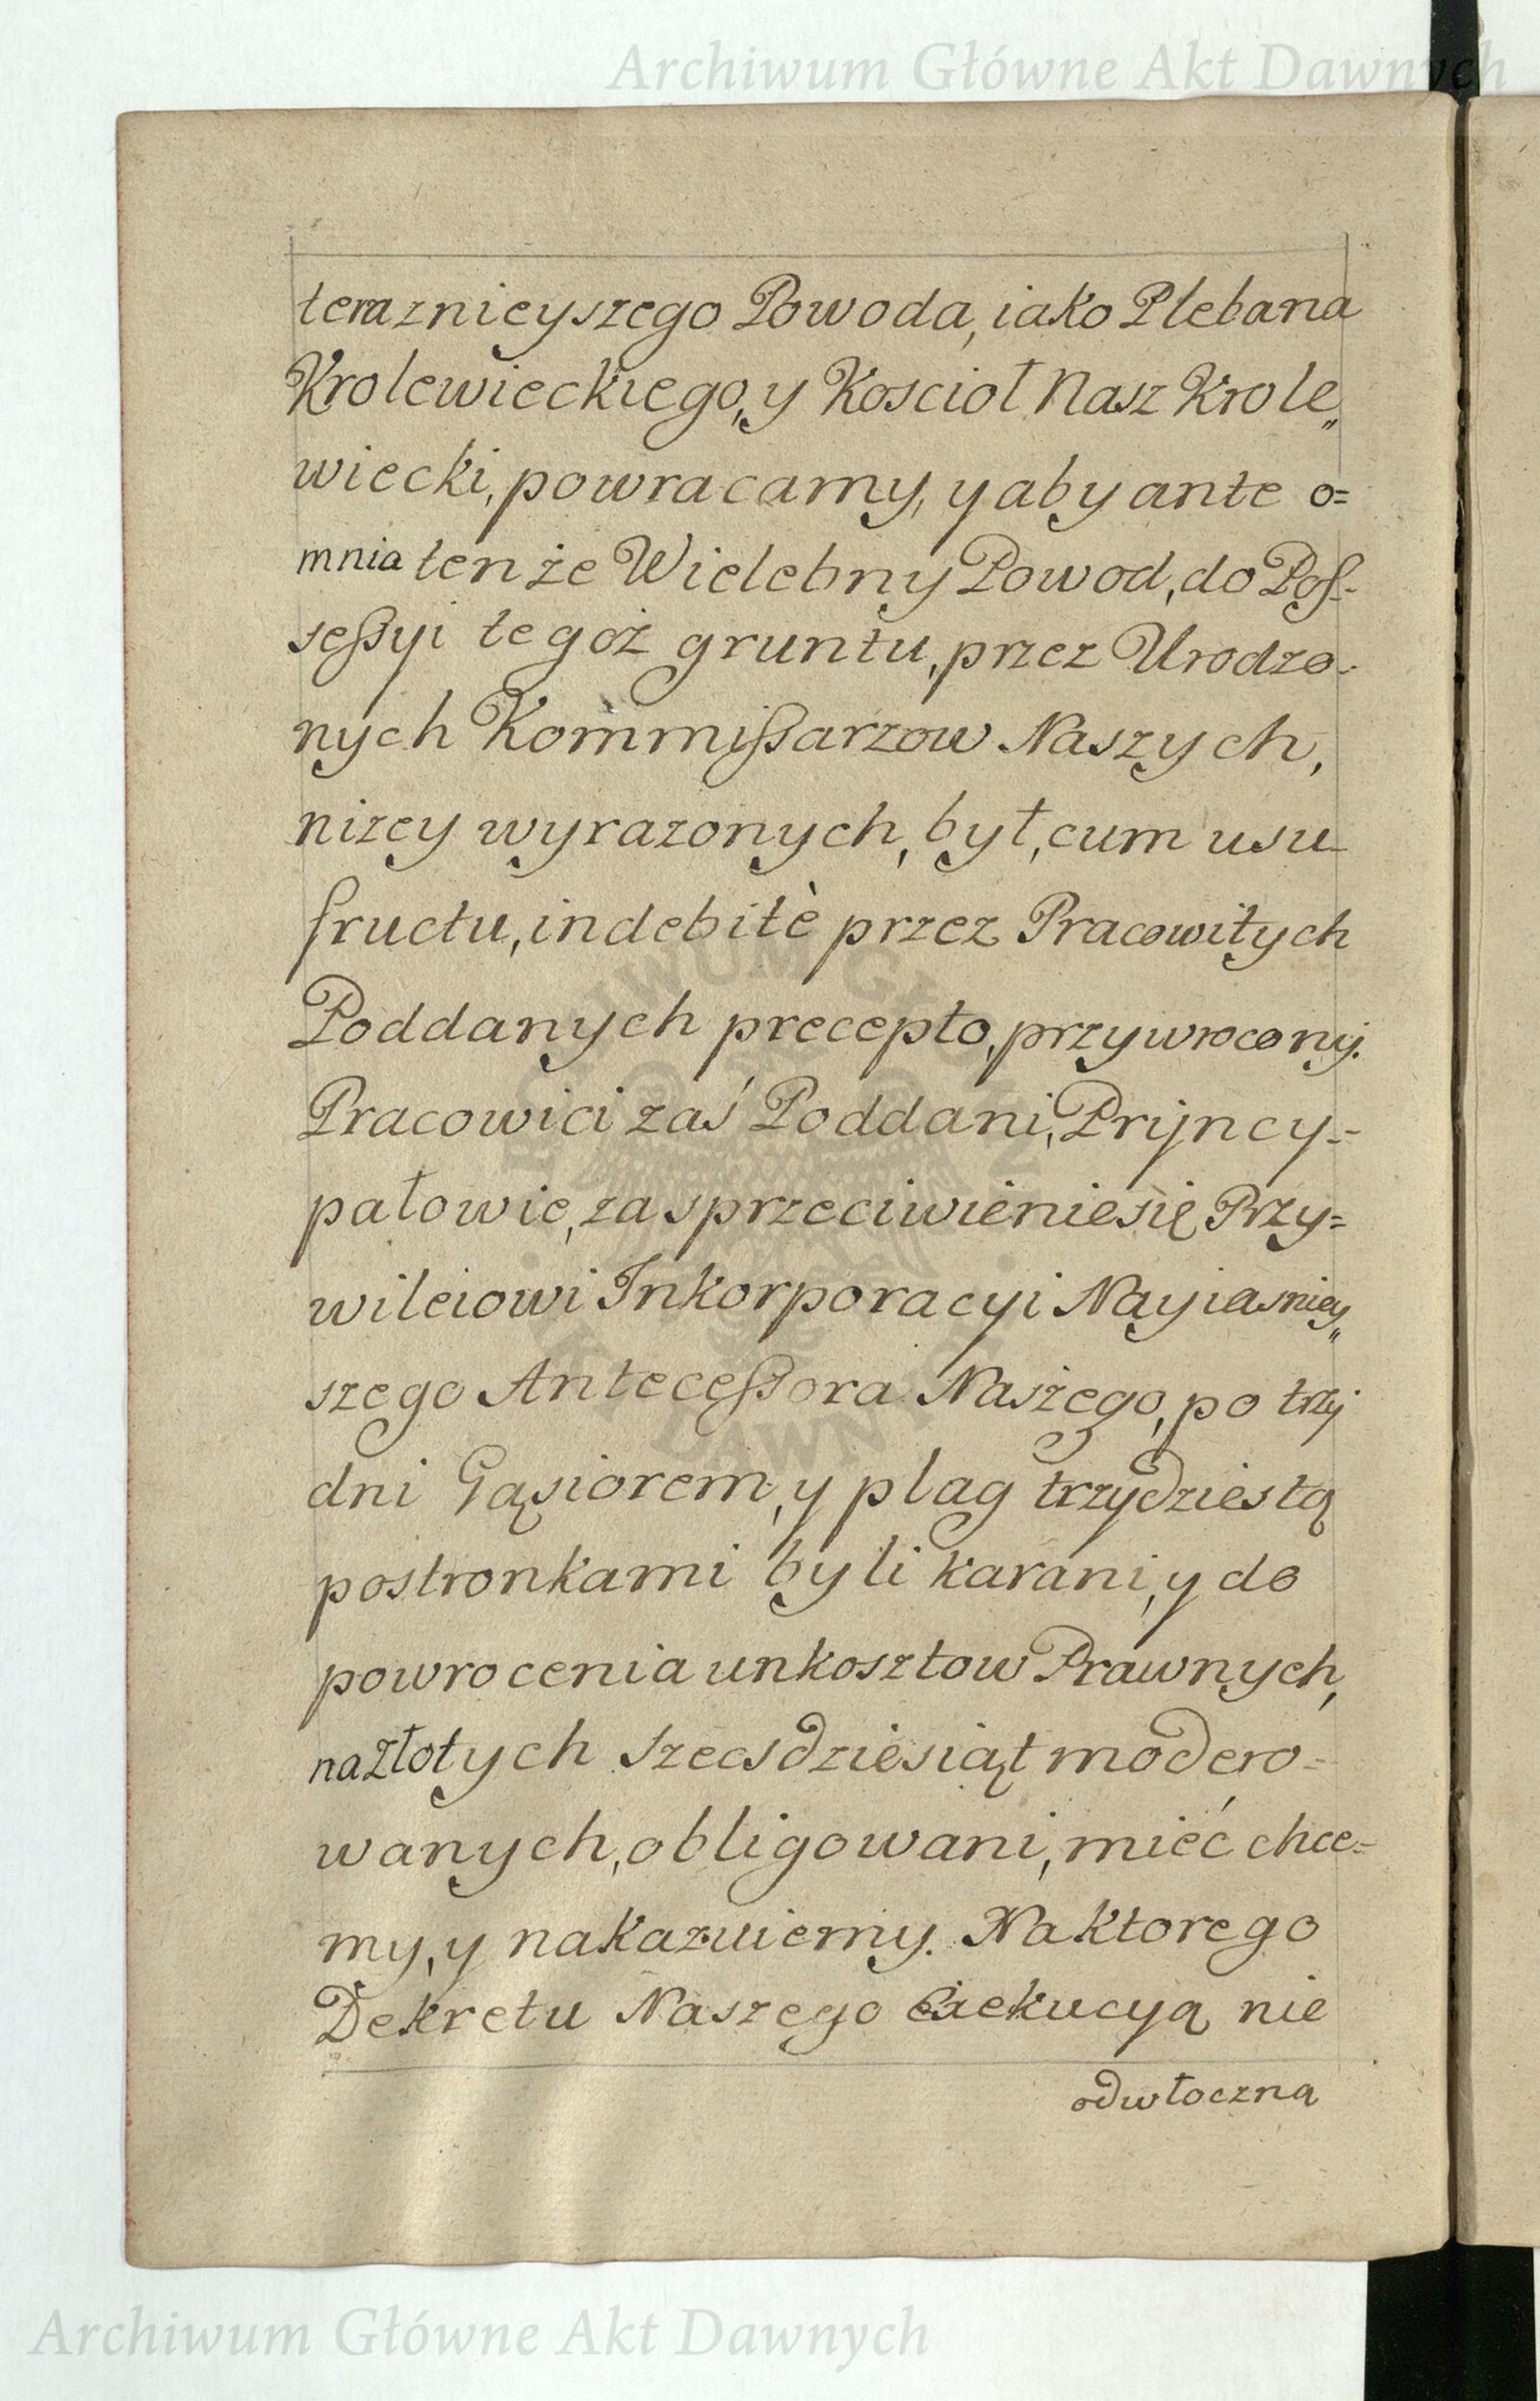 Archiwum Główne Akt Dawnych
teraznieyszego Powoda, iako Plebana
Krolewieckiego, y Koscioł Nasz Krole„
wiecki, powracamy, y aby ante o=
mnia tenże Wielebny Powod, do Pos-
seßyi tegoż gruntu, przez Urodzo-
nych Kommißarzow Naszych,
niżey wyrazonych, był, cum usu
fructu, indebitè przez Pracowitych
Poddanych precepto, przywrocony.
Pracowici zaś Poddani, Pryncy-
pałowie, za sprzeciwienie się Przy=
wileiowi Inkorporacyi Nayiasniey„
szego Anteceßora Naszego, po trzy
dni Gąsiorem, y plag trzydziestą
postronkami byli karani, y do
powrocenia unkosztow Prawnych,
na Złotych szecsdziesiąt modero-
wanych, obligowani, mieć chce-
my, y nakazuiemy. Na ktorego
Dekretu Naszego Exekucyą nie
odwłoczną
Archiwum Główne Akt Dawnych